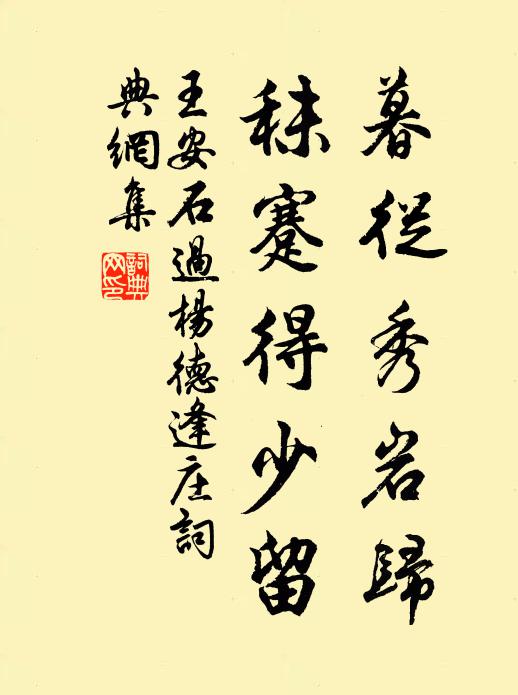 暮從秀岩歸
秣蹇得少留
王安石過楊德逢庄詞
典網集
詞典
网印